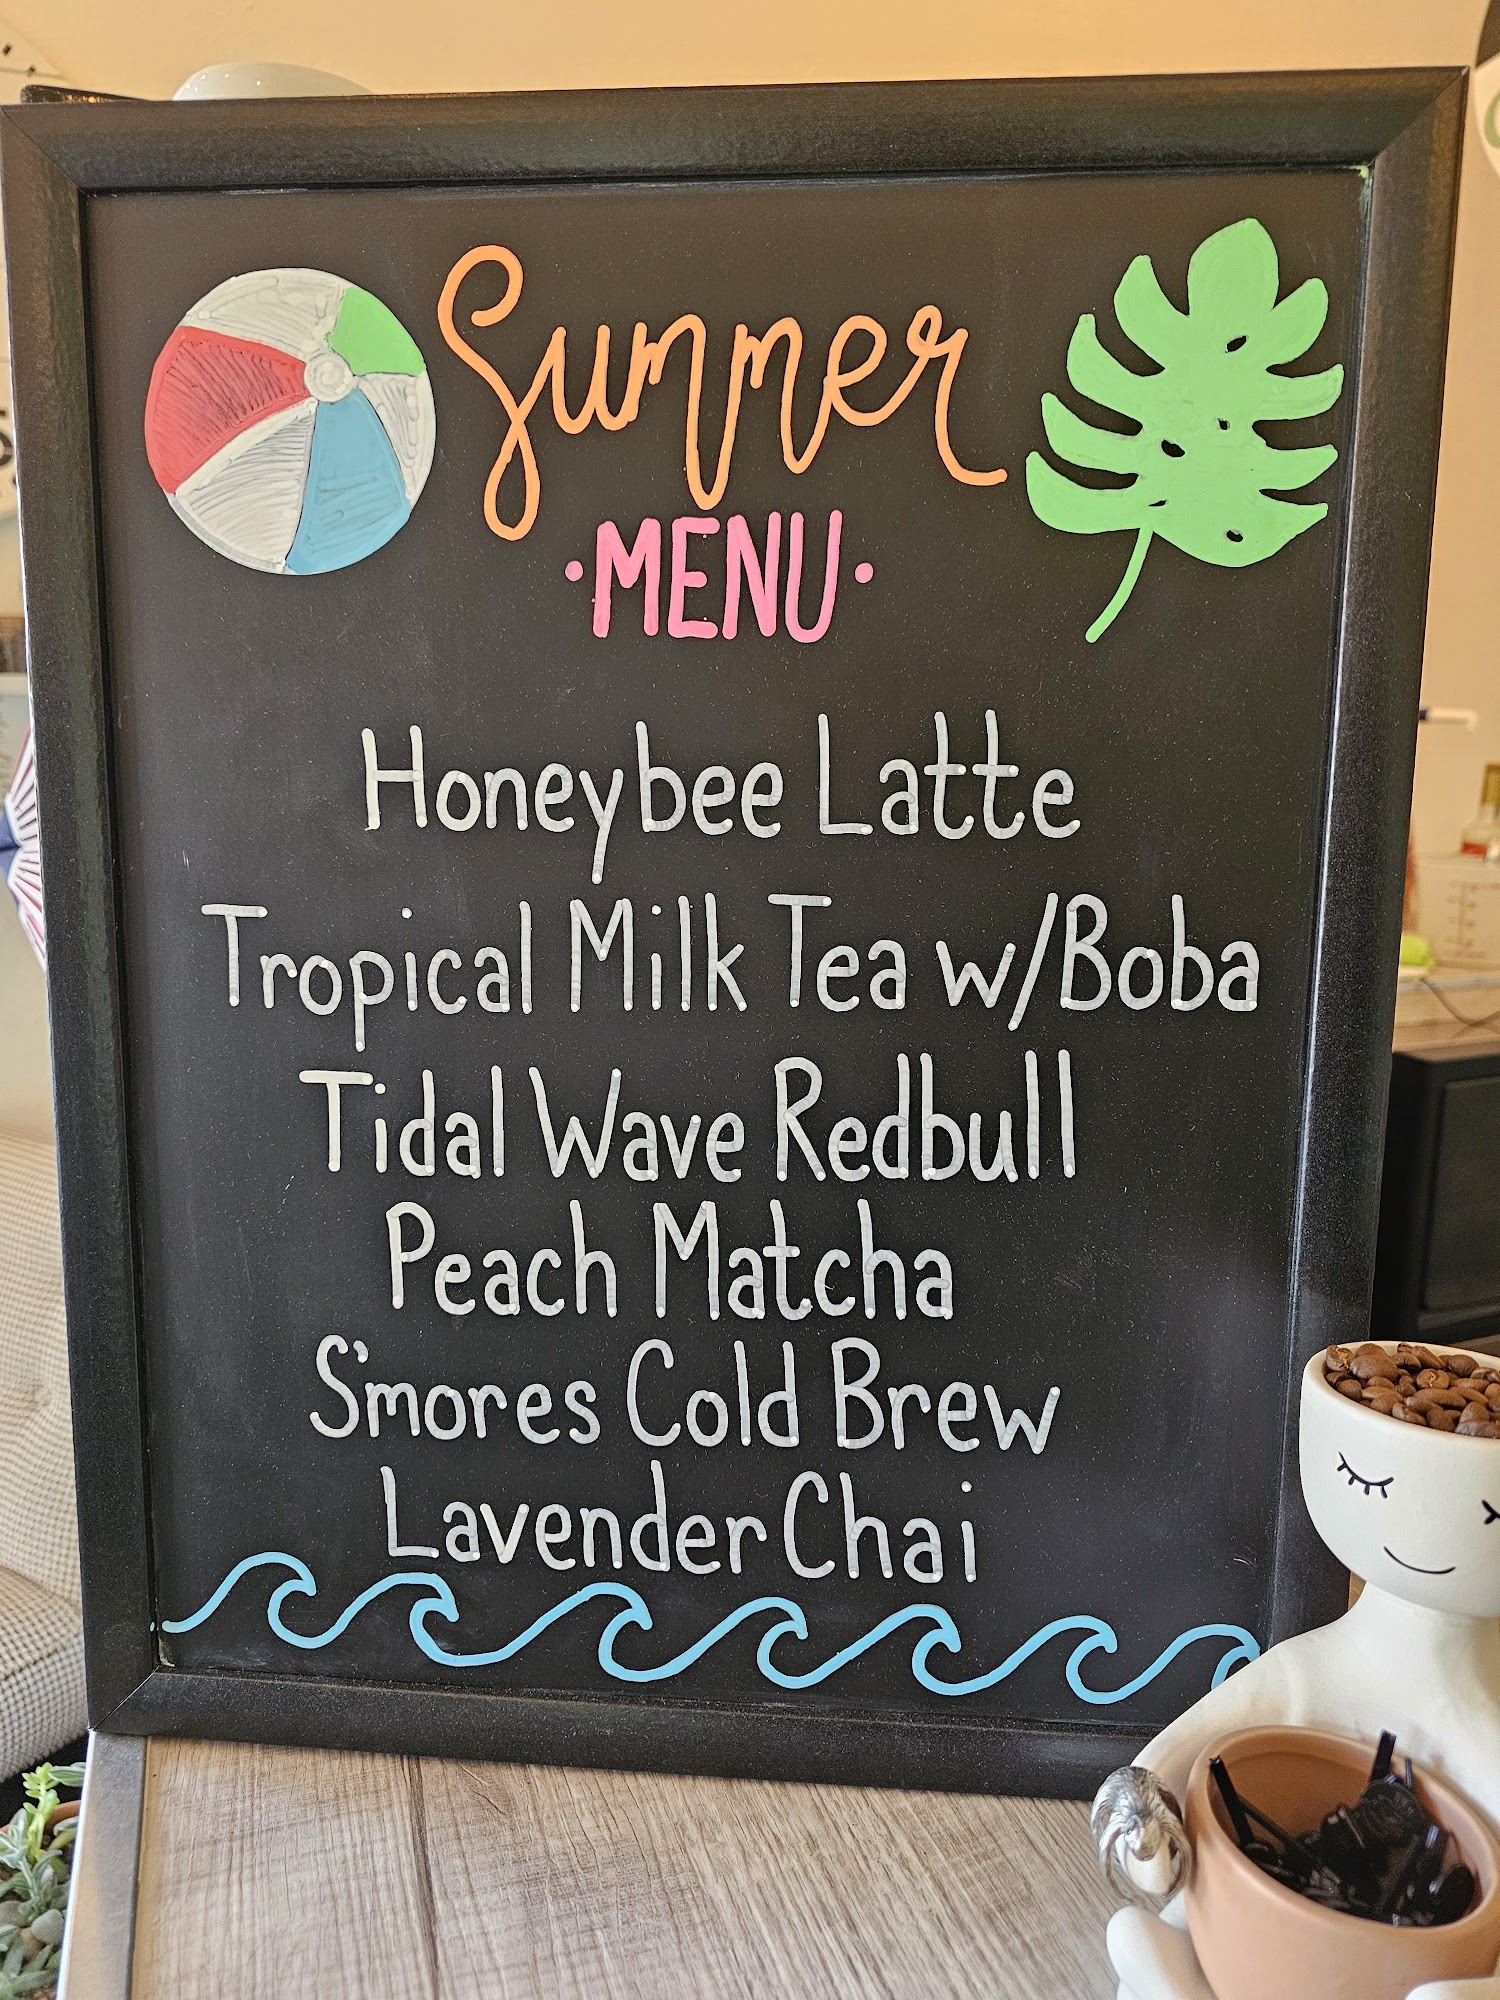 Summer
·MENU·
Honeybee Latte
Tropical Milk Tea w/Boba
Tidal Wave Redbull
Peach Matcha
S'mores Cold Brew
Lavender Chai